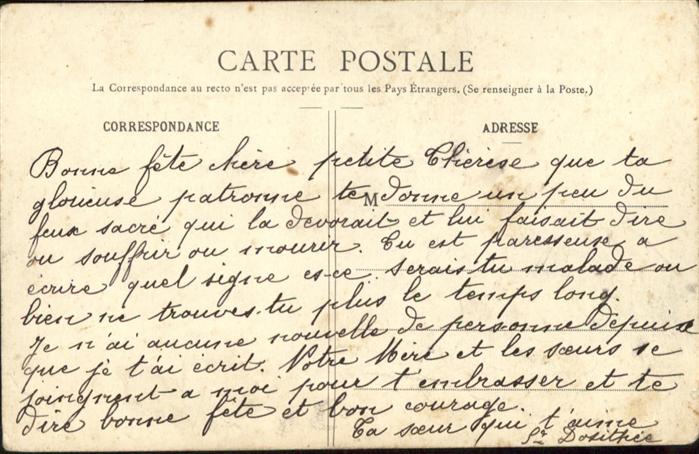 CARTE POSTALE
La Correspondance au recto n'est pas acceptée par tous les Pays Étrangers. (Se renseigner à la Poste.)
CORRESPONDANCE
ADRESSE
M
Bonne fête chère petite Thérèse que ta
glorieuse patronne te donne un peu du
feux sacré qui la dévorait et lui faisait dire
ou souffrir ou mourir. Tu est paresseuse a
écrire quel signe es-ce serais tu malade ou
bien ne trouves-tu plus le temps long.
Je n'ai aucune nouvelle de personne depuis
que je t'ai écrit. Notre Mère et les sœurs se
joingnent a moi pour t'embrasser et te
dire bonne fête et bon courage.
Ta sœur qui t'aime
Sr Dosithée